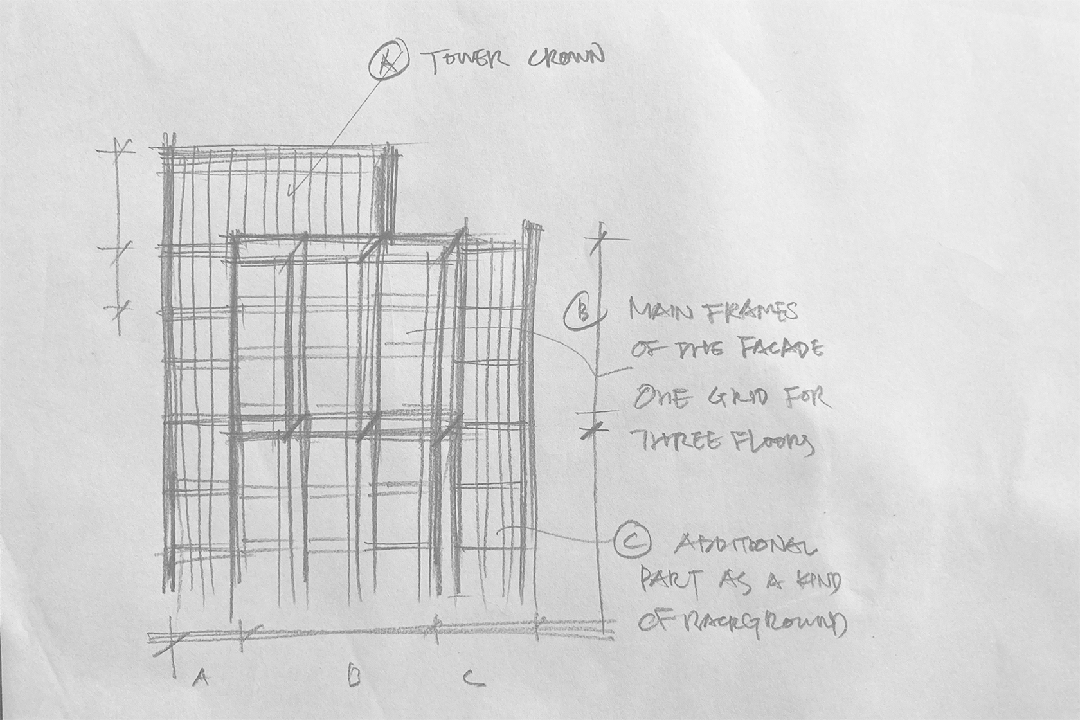 A TOWER CROWN
B MAIN FRAMES
OF THE FACADE
ONE GRID FOR
THREE FLOORS
C ADDITIONAL
PART AS A KIND
OF BACKGROUND
A B C